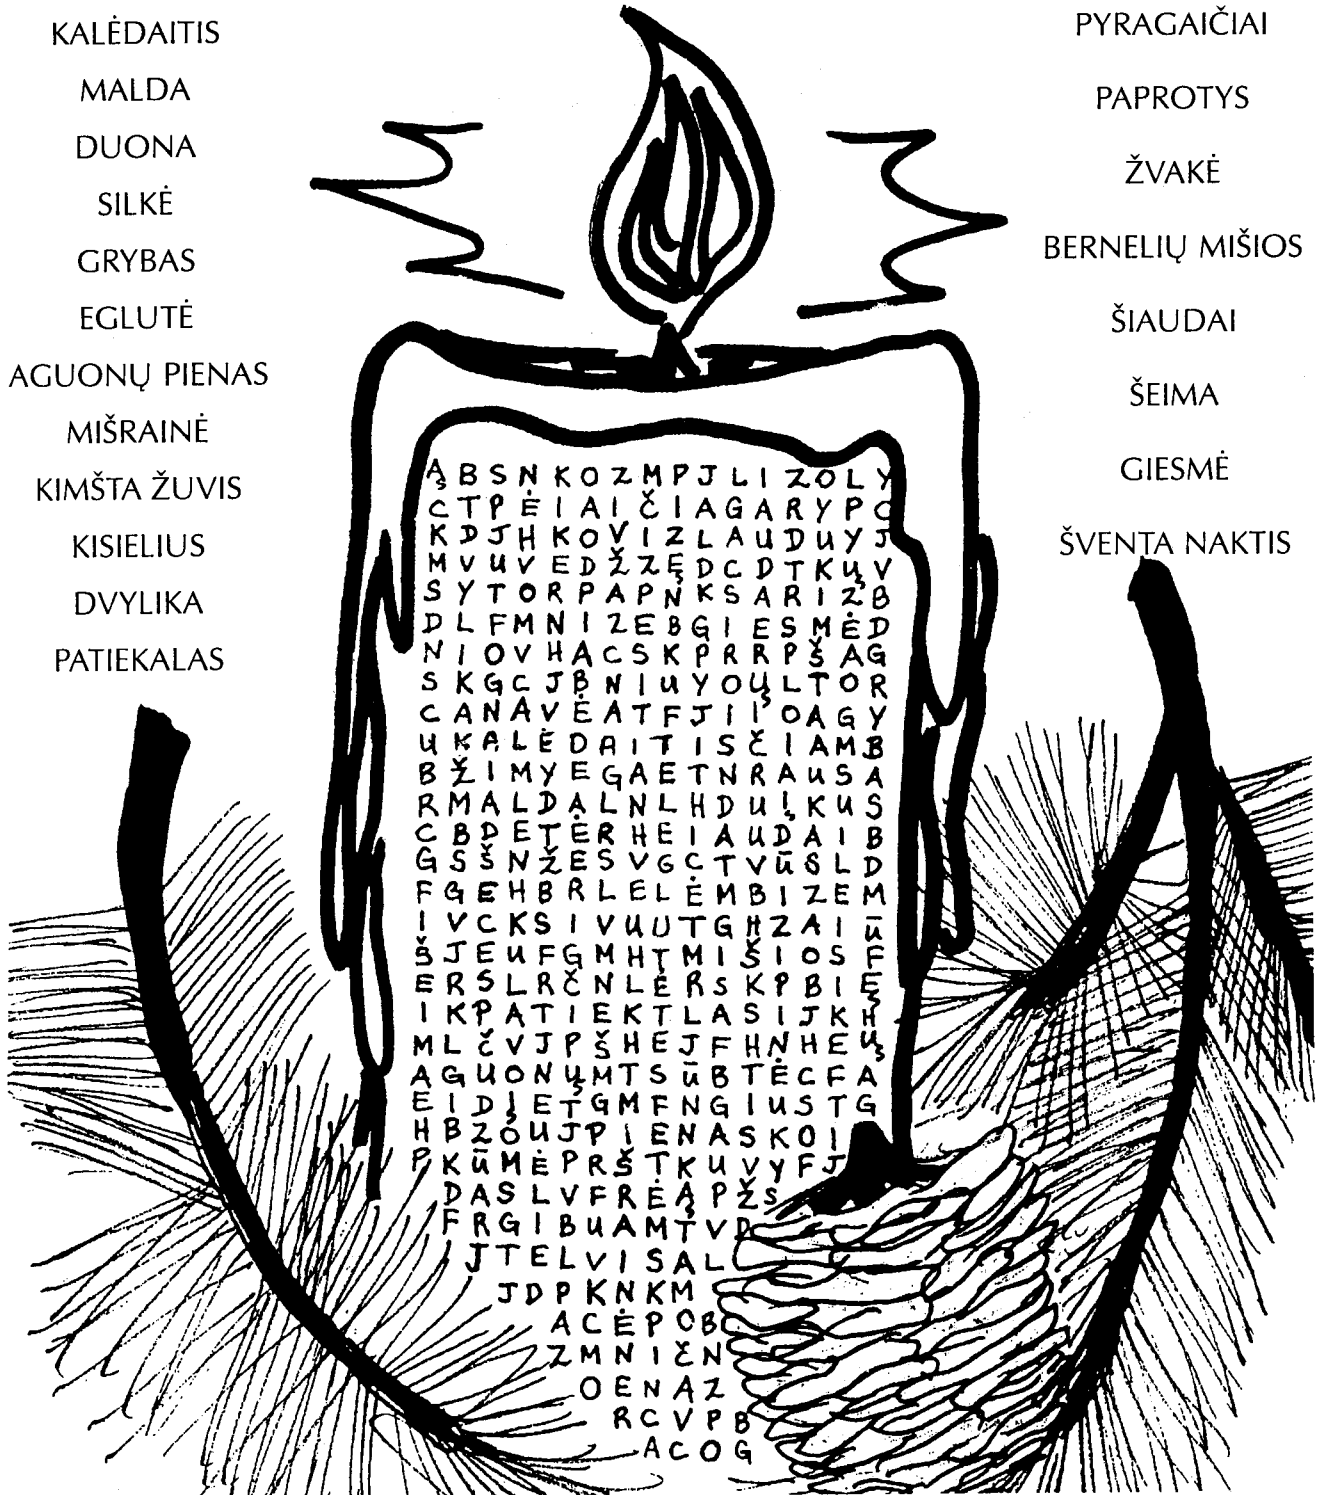 KALĖDAITIS
MALDA
DUONA
SILKĖ
GRYBAS
EGLUTĖ
AGUONŲ PIENAS
MIŠRAINĖ
KIMŠTA ŽUVIS
KISIELIUS
DVYLIKA
PATIEKALAS
PYRAGAIČIAI
PAPROTYS
ŽVAKĖ
BERNELIŲ MIŠIOS
ŠIAUDAI
ŠEIMA
GIESMĖ
ŠVENTA NAKTIS
Ą B S N K O Z M P J L I Z O L Y
C T P Ė I A I Č I A G A R Y P C
K D J H K O V I Z L A U D U Y J
M V U V E D Ž Z Ę D C D T K Ų V
S Y T O R P A P N K S A R I Z B
D L F M N I Z E B G I E S M Ė D
N I O V H A C S K P R R P Š A G
S K G C J B N I U Y O Ų L T O R
C A N A V Ė A T F J I I O A G Y
U K A L Ė D A I T I S Č I A M B
B Ž I M Y E G A E T N R A U S A
R M A L D A L N L H D U Į K U S
C B D E T Ė R H E I A U D A I B
G S Š N Ž E S V G C T V Ū S L D
F G E H B R L E L Ė M B I Z E M
I V C K S I V U U T G H Z A I Ū
Š J E U F G M H T M I Š I O S F
E R S L R Č N L Ė R S K P B I Ę
I K P A T I E K T L A S I J K H
M L Č V J P Š H E J F H N H E Ų
A G U O N Ų M T S Ū B T Ė C F A
E I D Į E T G M F N G I U S T G
H B Z O U J P I E N A S K O I
P K Ū M Ė P R Š T K U V Y F J
D A S L V F R Ė Ą P Ž S
F R G I B U A M T V D
J T E L V I S A L
J D P K N K M
A C Ė P O B
Z M N I Č N
O E N A Z
R C V P B
A C O G